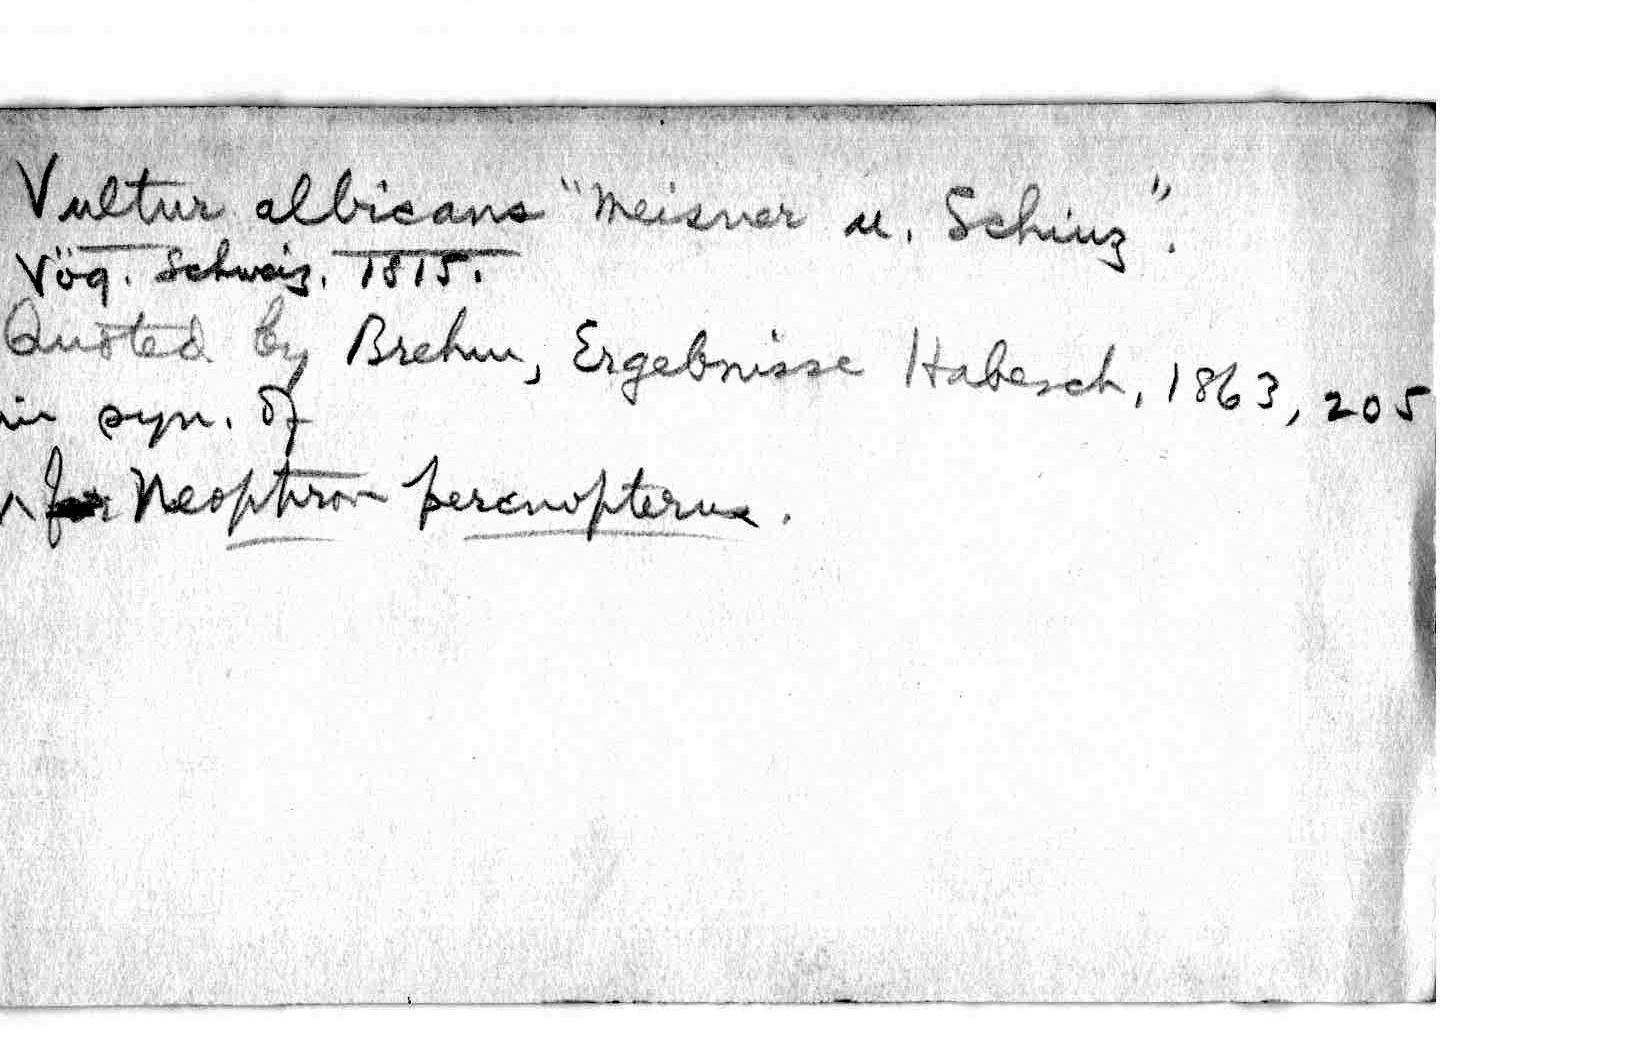 Vultur albicans "Meisner u. Schinz".
Vög. Schweiz. 1815.
Quoted by Brehm, Ergebnisse Habesch, 1863, 205
in syn. of
Neophron percnopterus.